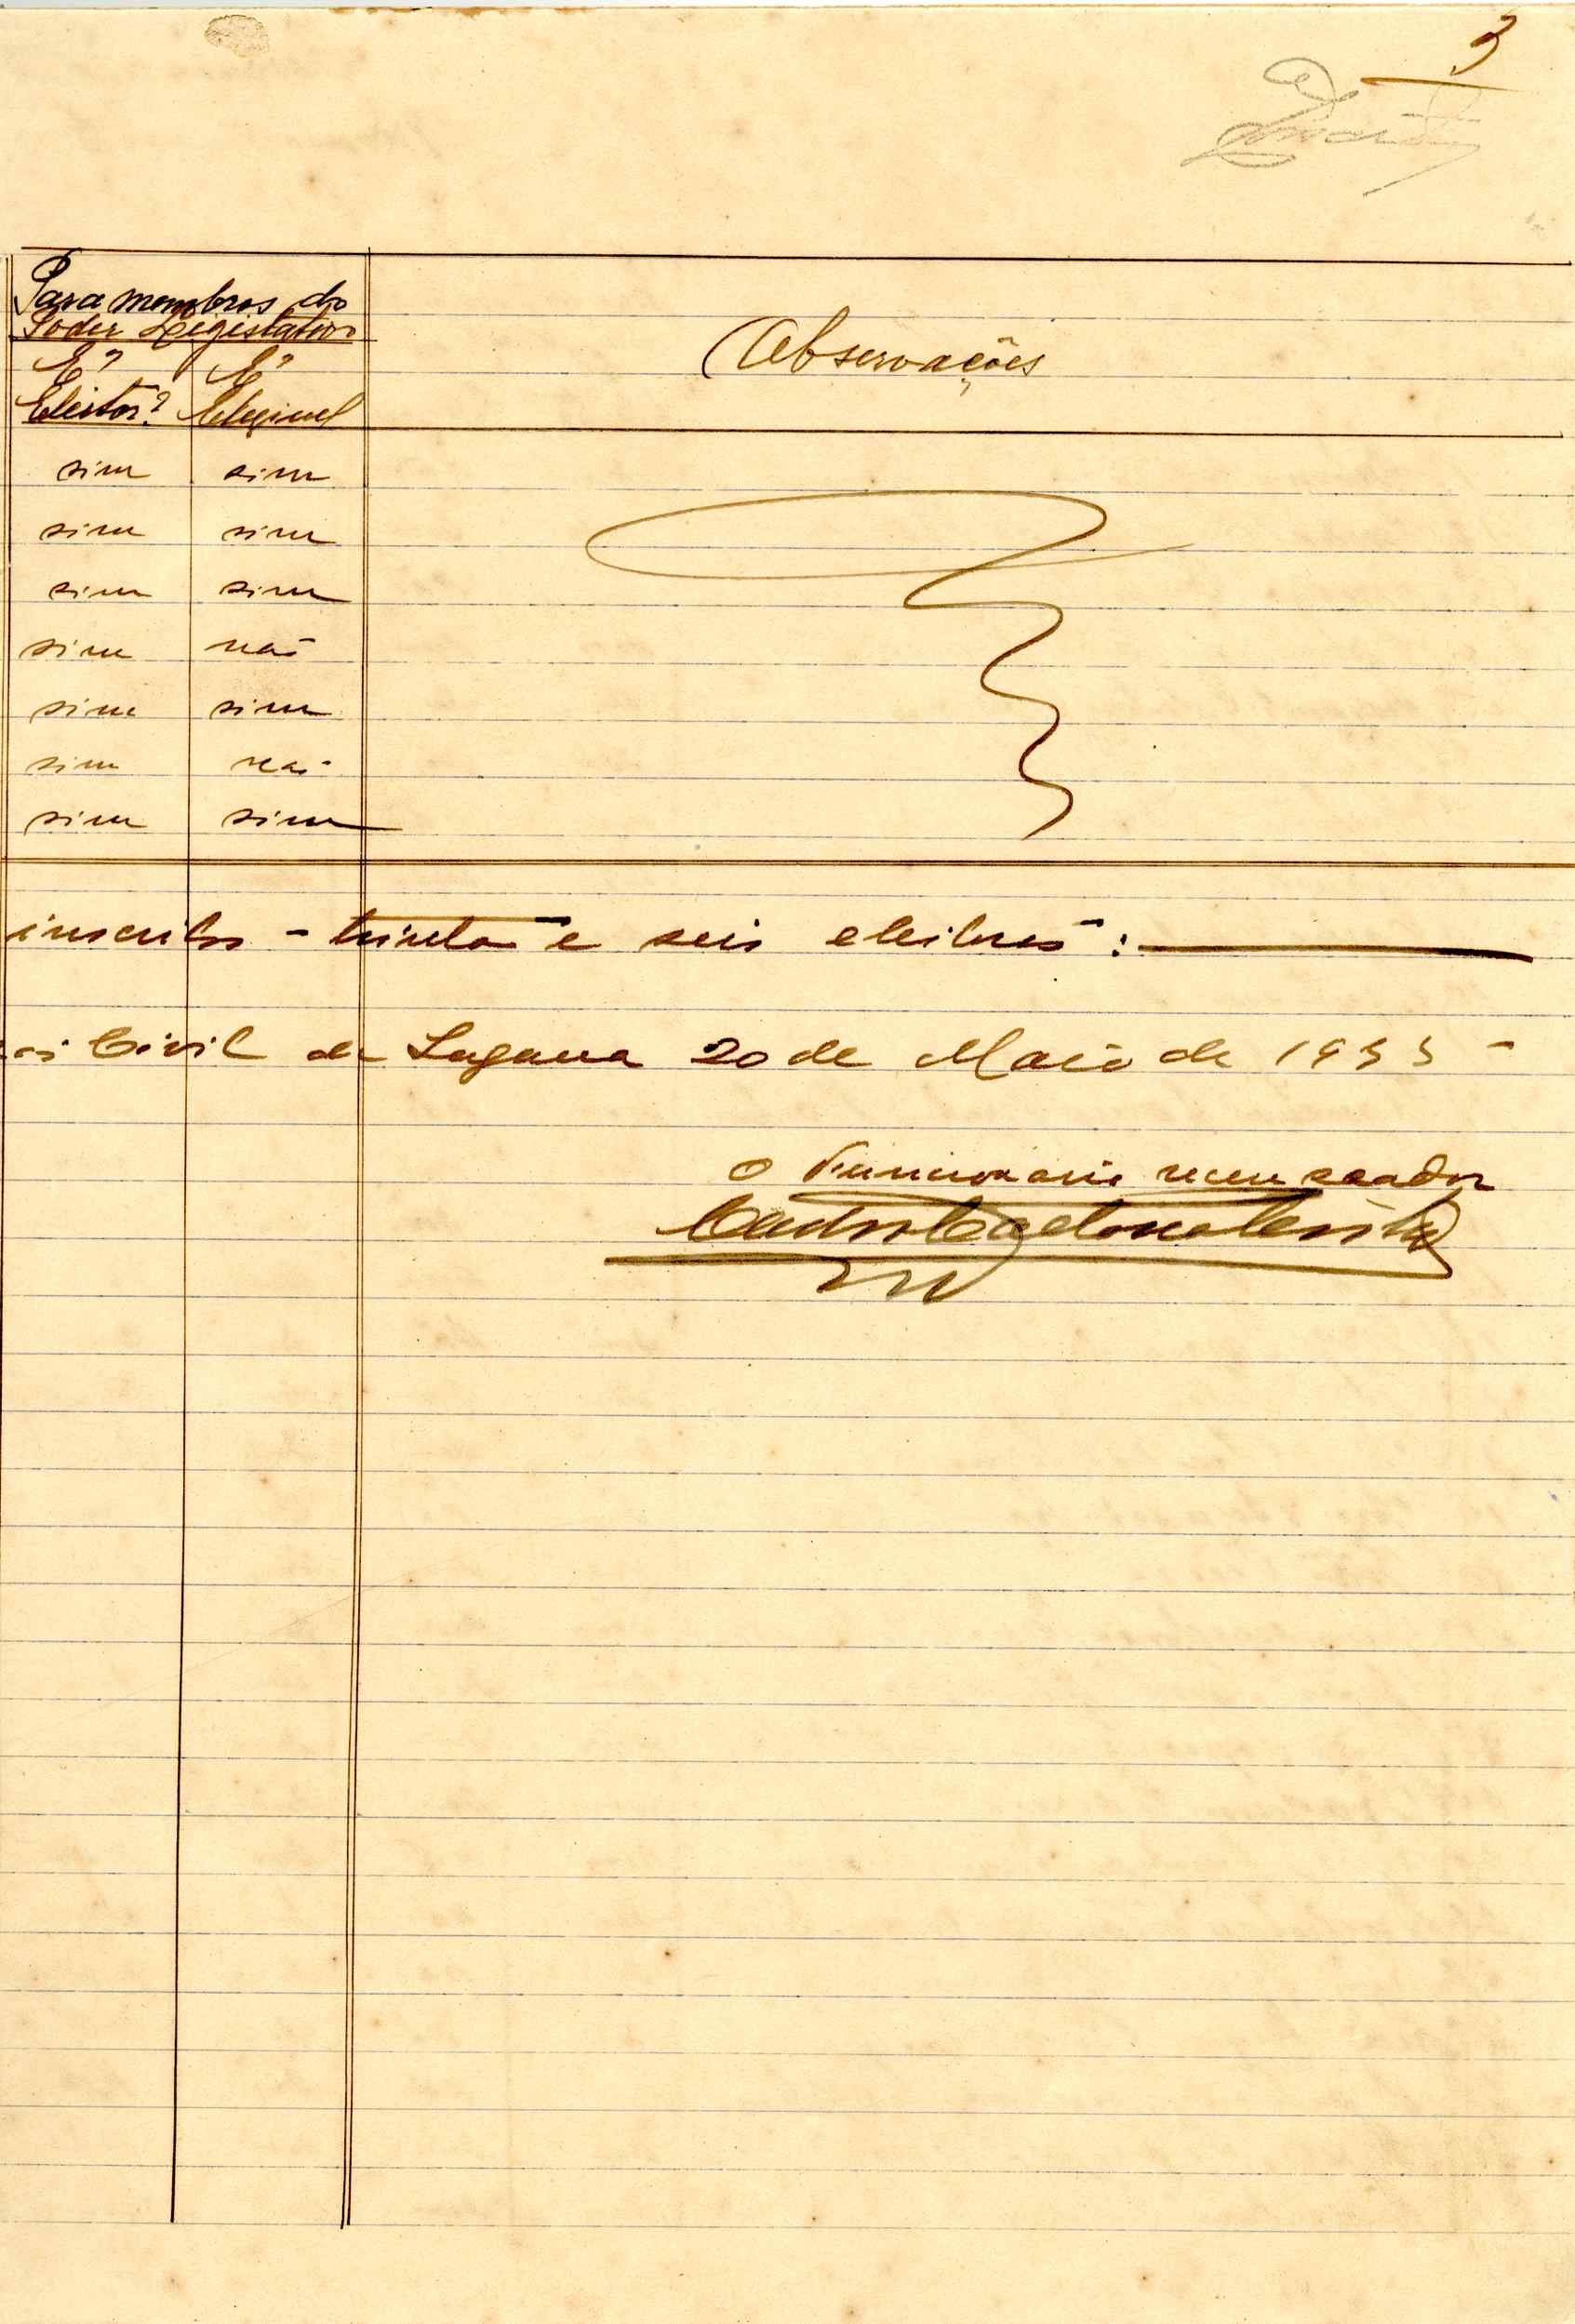 3
Para membros do
Poder Legislativo
E' E'
Eleitor? Elegivel
Observações
sim sim
sim sim
sim sim
sim não
sim sim
sim não
sim sim
inscritos - trinta e seis eleitores:
Civil de Lugana 20 de Maio de 1933 -
O Funcionario recenseador